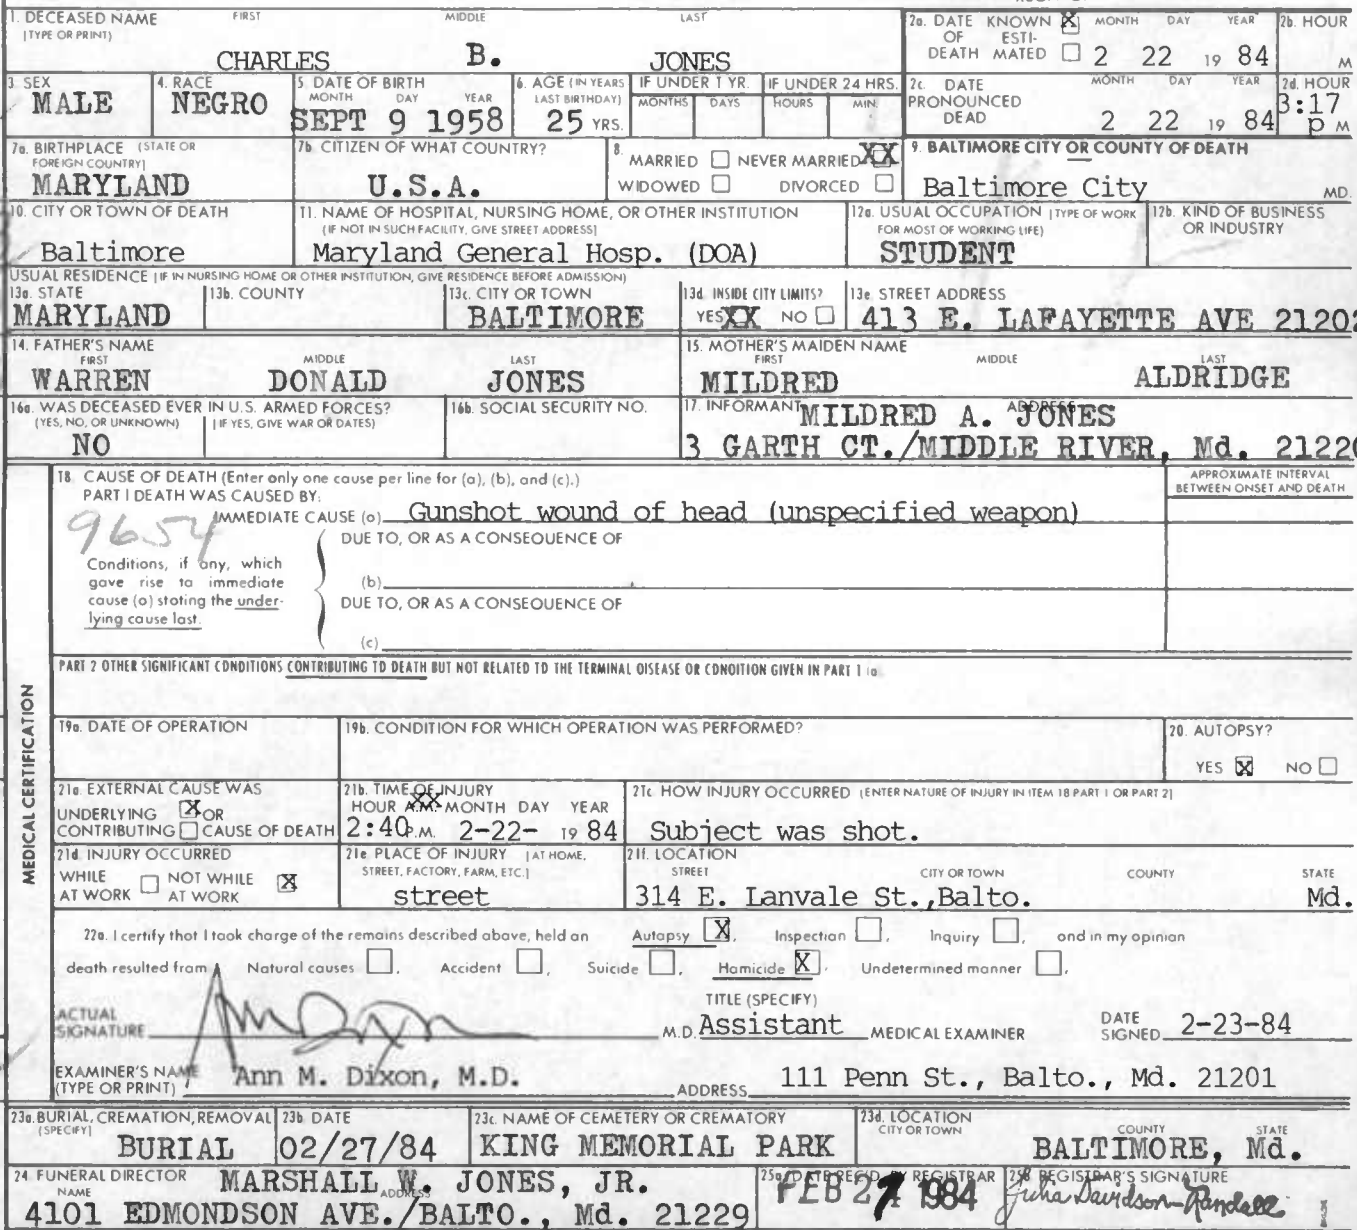 1. DECEASED NAME FIRST MIDDLE LAST
(TYPE OR PRINT)
CHARLES B. JONES
2a. DATE KNOWN X MONTH DAY YEAR 2b. HOUR
OF ESTI-
DEATH MATED 2 22 19 84 M
3 SEX 4. RACE 5 DATE OF BIRTH 6. AGE (IN YEARS IF UNDER 1 YR. IF UNDER 24 HRS.
MONTH DAY YEAR LAST BIRTHDAY) MONTHS DAYS HOURS MIN.
MALE NEGRO SEPT 9 1958 25 YRS.
2c. DATE MONTH DAY YEAR 2d. HOUR
PRONOUNCED
DEAD 2 22 19 84 3:17 P M
7a. BIRTHPLACE (STATE OR
FOREIGN COUNTRY)
MARYLAND
7b CITIZEN OF WHAT COUNTRY?
U.S.A.
8. MARRIED NEVER MARRIED XX
WIDOWED DIVORCED
9. BALTIMORE CITY OR COUNTY OF DEATH
Baltimore City MD.
10. CITY OR TOWN OF DEATH
Baltimore
11. NAME OF HOSPITAL, NURSING HOME, OR OTHER INSTITUTION
(IF NOT IN SUCH FACILITY, GIVE STREET ADDRESS)
Maryland General Hosp. (DOA)
12a. USUAL OCCUPATION (TYPE OF WORK
FOR MOST OF WORKING LIFE)
STUDENT
12b. KIND OF BUSINESS
OR INDUSTRY
USUAL RESIDENCE (IF IN NURSING HOME OR OTHER INSTITUTION, GIVE RESIDENCE BEFORE ADMISSION)
13a. STATE 13b. COUNTY 13c. CITY OR TOWN 13d. INSIDE CITY LIMITS? 13e STREET ADDRESS
MARYLAND BALTIMORE YES XX NO 413 E. LAFAYETTE AVE 21202
14. FATHER'S NAME
FIRST MIDDLE LAST
WARREN DONALD JONES
15. MOTHER'S MAIDEN NAME
FIRST MIDDLE LAST
MILDRED ALDRIDGE
16a. WAS DECEASED EVER IN U.S. ARMED FORCES?
(YES, NO, OR UNKNOWN) (IF YES, GIVE WAR OR DATES)
NO
16b. SOCIAL SECURITY NO.
17. INFORMANT ADDRESS
MILDRED A. JONES
3 GARTH CT./MIDDLE RIVER, Md. 21220
MEDICAL CERTIFICATION
18. CAUSE OF DEATH (Enter only one cause per line for (a), (b), and (c).)
PART I DEATH WAS CAUSED BY:
APPROXIMATE INTERVAL
BETWEEN ONSET AND DEATH
9654
IMMEDIATE CAUSE (a) Gunshot wound of head (unspecified weapon)
DUE TO, OR AS A CONSEQUENCE OF
Conditions, if any, which
gave rise to immediate
cause (a) stating the under-
lying cause last.
(b)
DUE TO, OR AS A CONSEQUENCE OF
(c)
PART 2 OTHER SIGNIFICANT CONDITIONS CONTRIBUTING TO DEATH BUT NOT RELATED TO THE TERMINAL DISEASE OR CONDITION GIVEN IN PART 1 (a)
19a. DATE OF OPERATION 19b. CONDITION FOR WHICH OPERATION WAS PERFORMED? 20. AUTOPSY?
YES X NO
21a. EXTERNAL CAUSE WAS
UNDERLYING X OR
CONTRIBUTING CAUSE OF DEATH
21b. TIME OF INJURY
HOUR A.M. MONTH DAY YEAR
2:40 P.M. 2-22- 19 84
21c. HOW INJURY OCCURRED (ENTER NATURE OF INJURY IN ITEM 18 PART 1 OR PART 2)
Subject was shot.
21d. INJURY OCCURRED
WHILE NOT WHILE X
AT WORK AT WORK
21e PLACE OF INJURY (AT HOME,
STREET, FACTORY, FARM, ETC.)
street
21f. LOCATION
STREET CITY OR TOWN COUNTY STATE
314 E. Lanvale St.,Balto. Md.
22a. I certify that I took charge of the remains described above, held an Autopsy X, Inspection, Inquiry, and in my opinion
death resulted from Natural causes, Accident, Suicide, Homicide X, Undetermined manner.
TITLE (SPECIFY)
ACTUAL
SIGNATURE Ann Dixon M.D. Assistant MEDICAL EXAMINER DATE
SIGNED 2-23-84
EXAMINER'S NAME
(TYPE OR PRINT) Ann M. Dixon, M.D. ADDRESS 111 Penn St., Balto., Md. 21201
23a. BURIAL, CREMATION, REMOVAL 23b DATE 23c. NAME OF CEMETERY OR CREMATORY 23d. LOCATION
(SPECIFY) CITY OR TOWN COUNTY STATE
BURIAL 02/27/84 KING MEMORIAL PARK BALTIMORE, Md.
24 FUNERAL DIRECTOR
NAME ADDRESS
MARSHALL W. JONES, JR.
4101 EDMONDSON AVE./BALTO., Md. 21229
25a. DATE REC'D. BY REGISTRAR
FEB 27 1984
25b REGISTRAR'S SIGNATURE
Julia Davidson-Randall